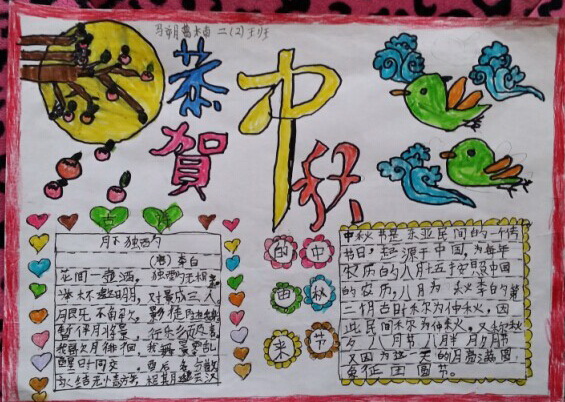 二(2)
恭賀
中秋
月下独酌
(唐) 李白
花间一壶酒, 独酌无相亲
对影成三人
月既不解饮, 影徒随我身
暂伴月将影, 行乐须及春
我歌月徘徊, 我舞影零乱
醒时同交 醉后各分散
永结无情游, 相期邈云汉
的 中
由 秋
来 节
中秋节是 东亚民间的一个传
节日, 起源于中国, 为每年
农历的八月十五 按照中国
的农历, 八月为 秋季的第
二个月古时称为仲秋, 因
此民间称为中秋, 又称秋
夕 八月节 八月半 月夕
又因为这一天的月亮满圆
象征团圆节。